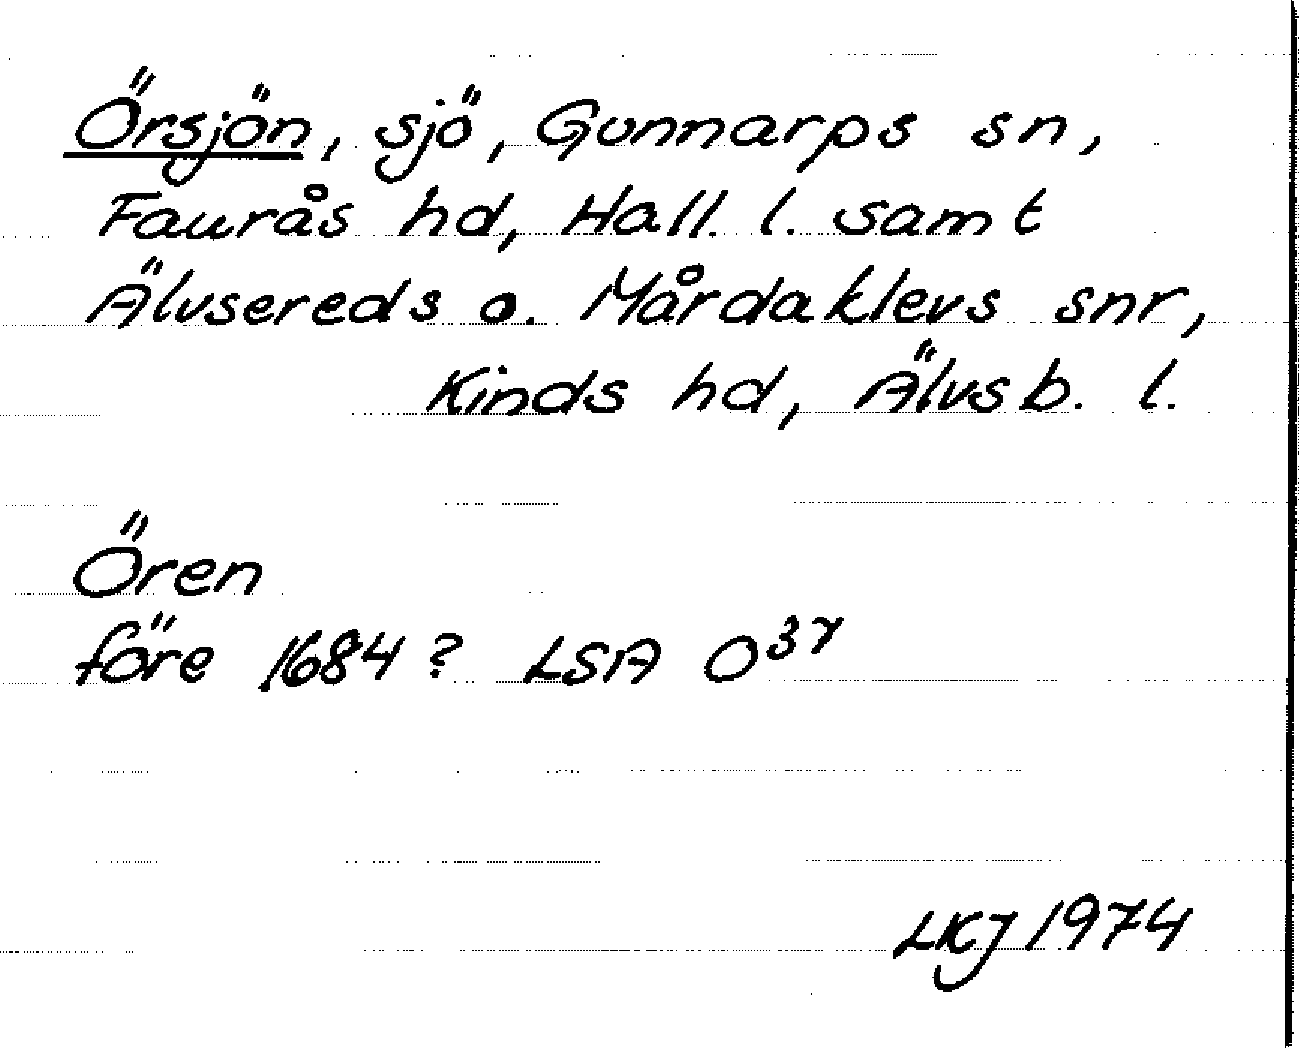 Örsjön, sjö, Gunnarps sn,
Faurås hd, Hall. l. samt
Älvsereds o. Mårdaklevs snr,
Kinds hd, Älvsb. l.
Ören
före 1684? LSA O³⁷
LKJ 1974